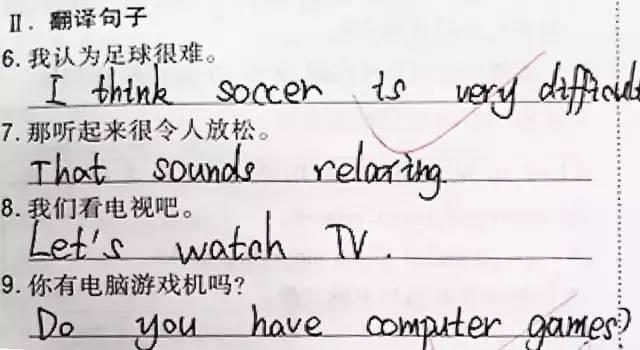 II. 翻译句子
6. 我认为足球很难。
I think soccer is very difficult
7. 那听起来很令人放松。
That sounds relaxing
8. 我们看电视吧。
Let's watch TV.
9. 你有电脑游戏机吗?
Do you have computer games?